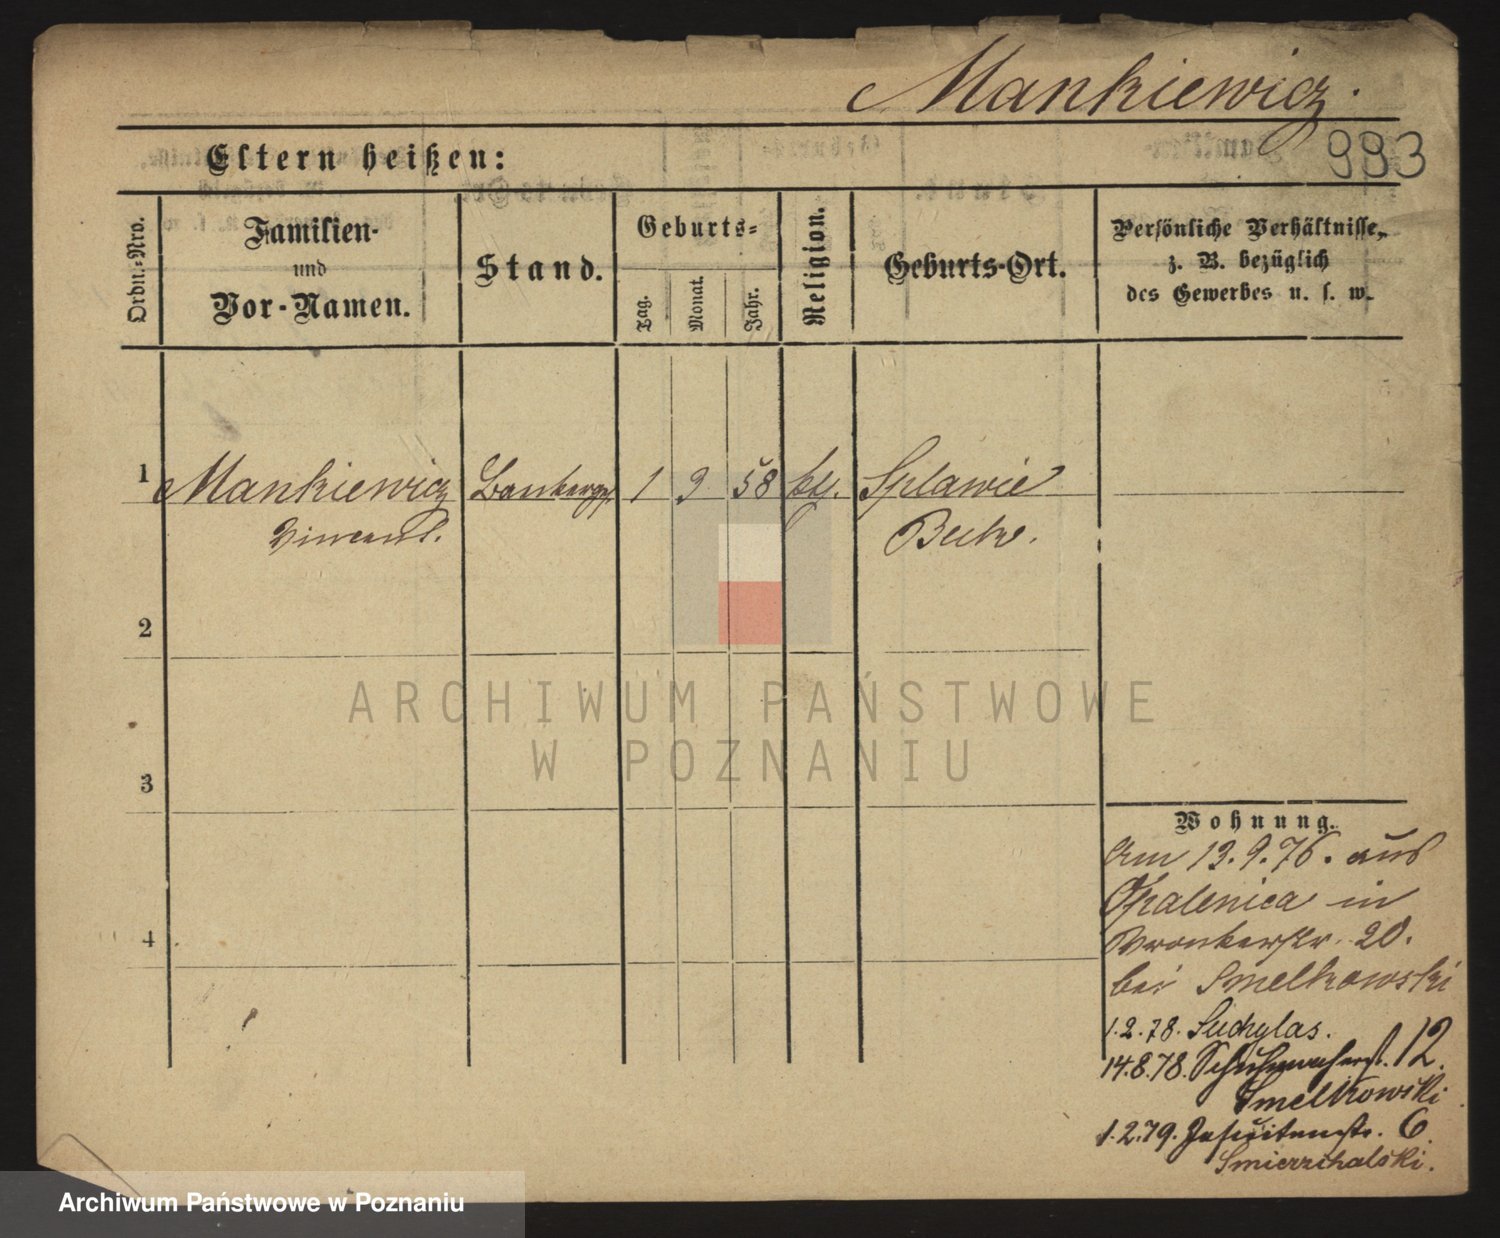 Mankiewicz.
993
Eltern heißen:
Ordn.-Nro.
Familien-
und
Vor-Namen.
Stand.
Geburts-
Tag.
Monat.
Jahr.
Religion.
Geburts-Ort.
Persönliche Verhältnisse,
z. B. bezüglich
des Gewerbes u. s. w.
1 Mankiewicz 1 9 58 kth. Splawie
Vincent.
2
3
4
Wohnung.
Am 13.9.76. aus
Opalenica in
Wronkerstr. 20.
bei Smelkowski
1.2.78. Suchylas.
14.8.78. Schuhmacherst. 12.
Smelkowski
1.2.79. Jesuitenstr. 6.
ARCHIWUM PAŃSTWOWE
W POZNANIU
Archiwum Państwowe w Poznaniu